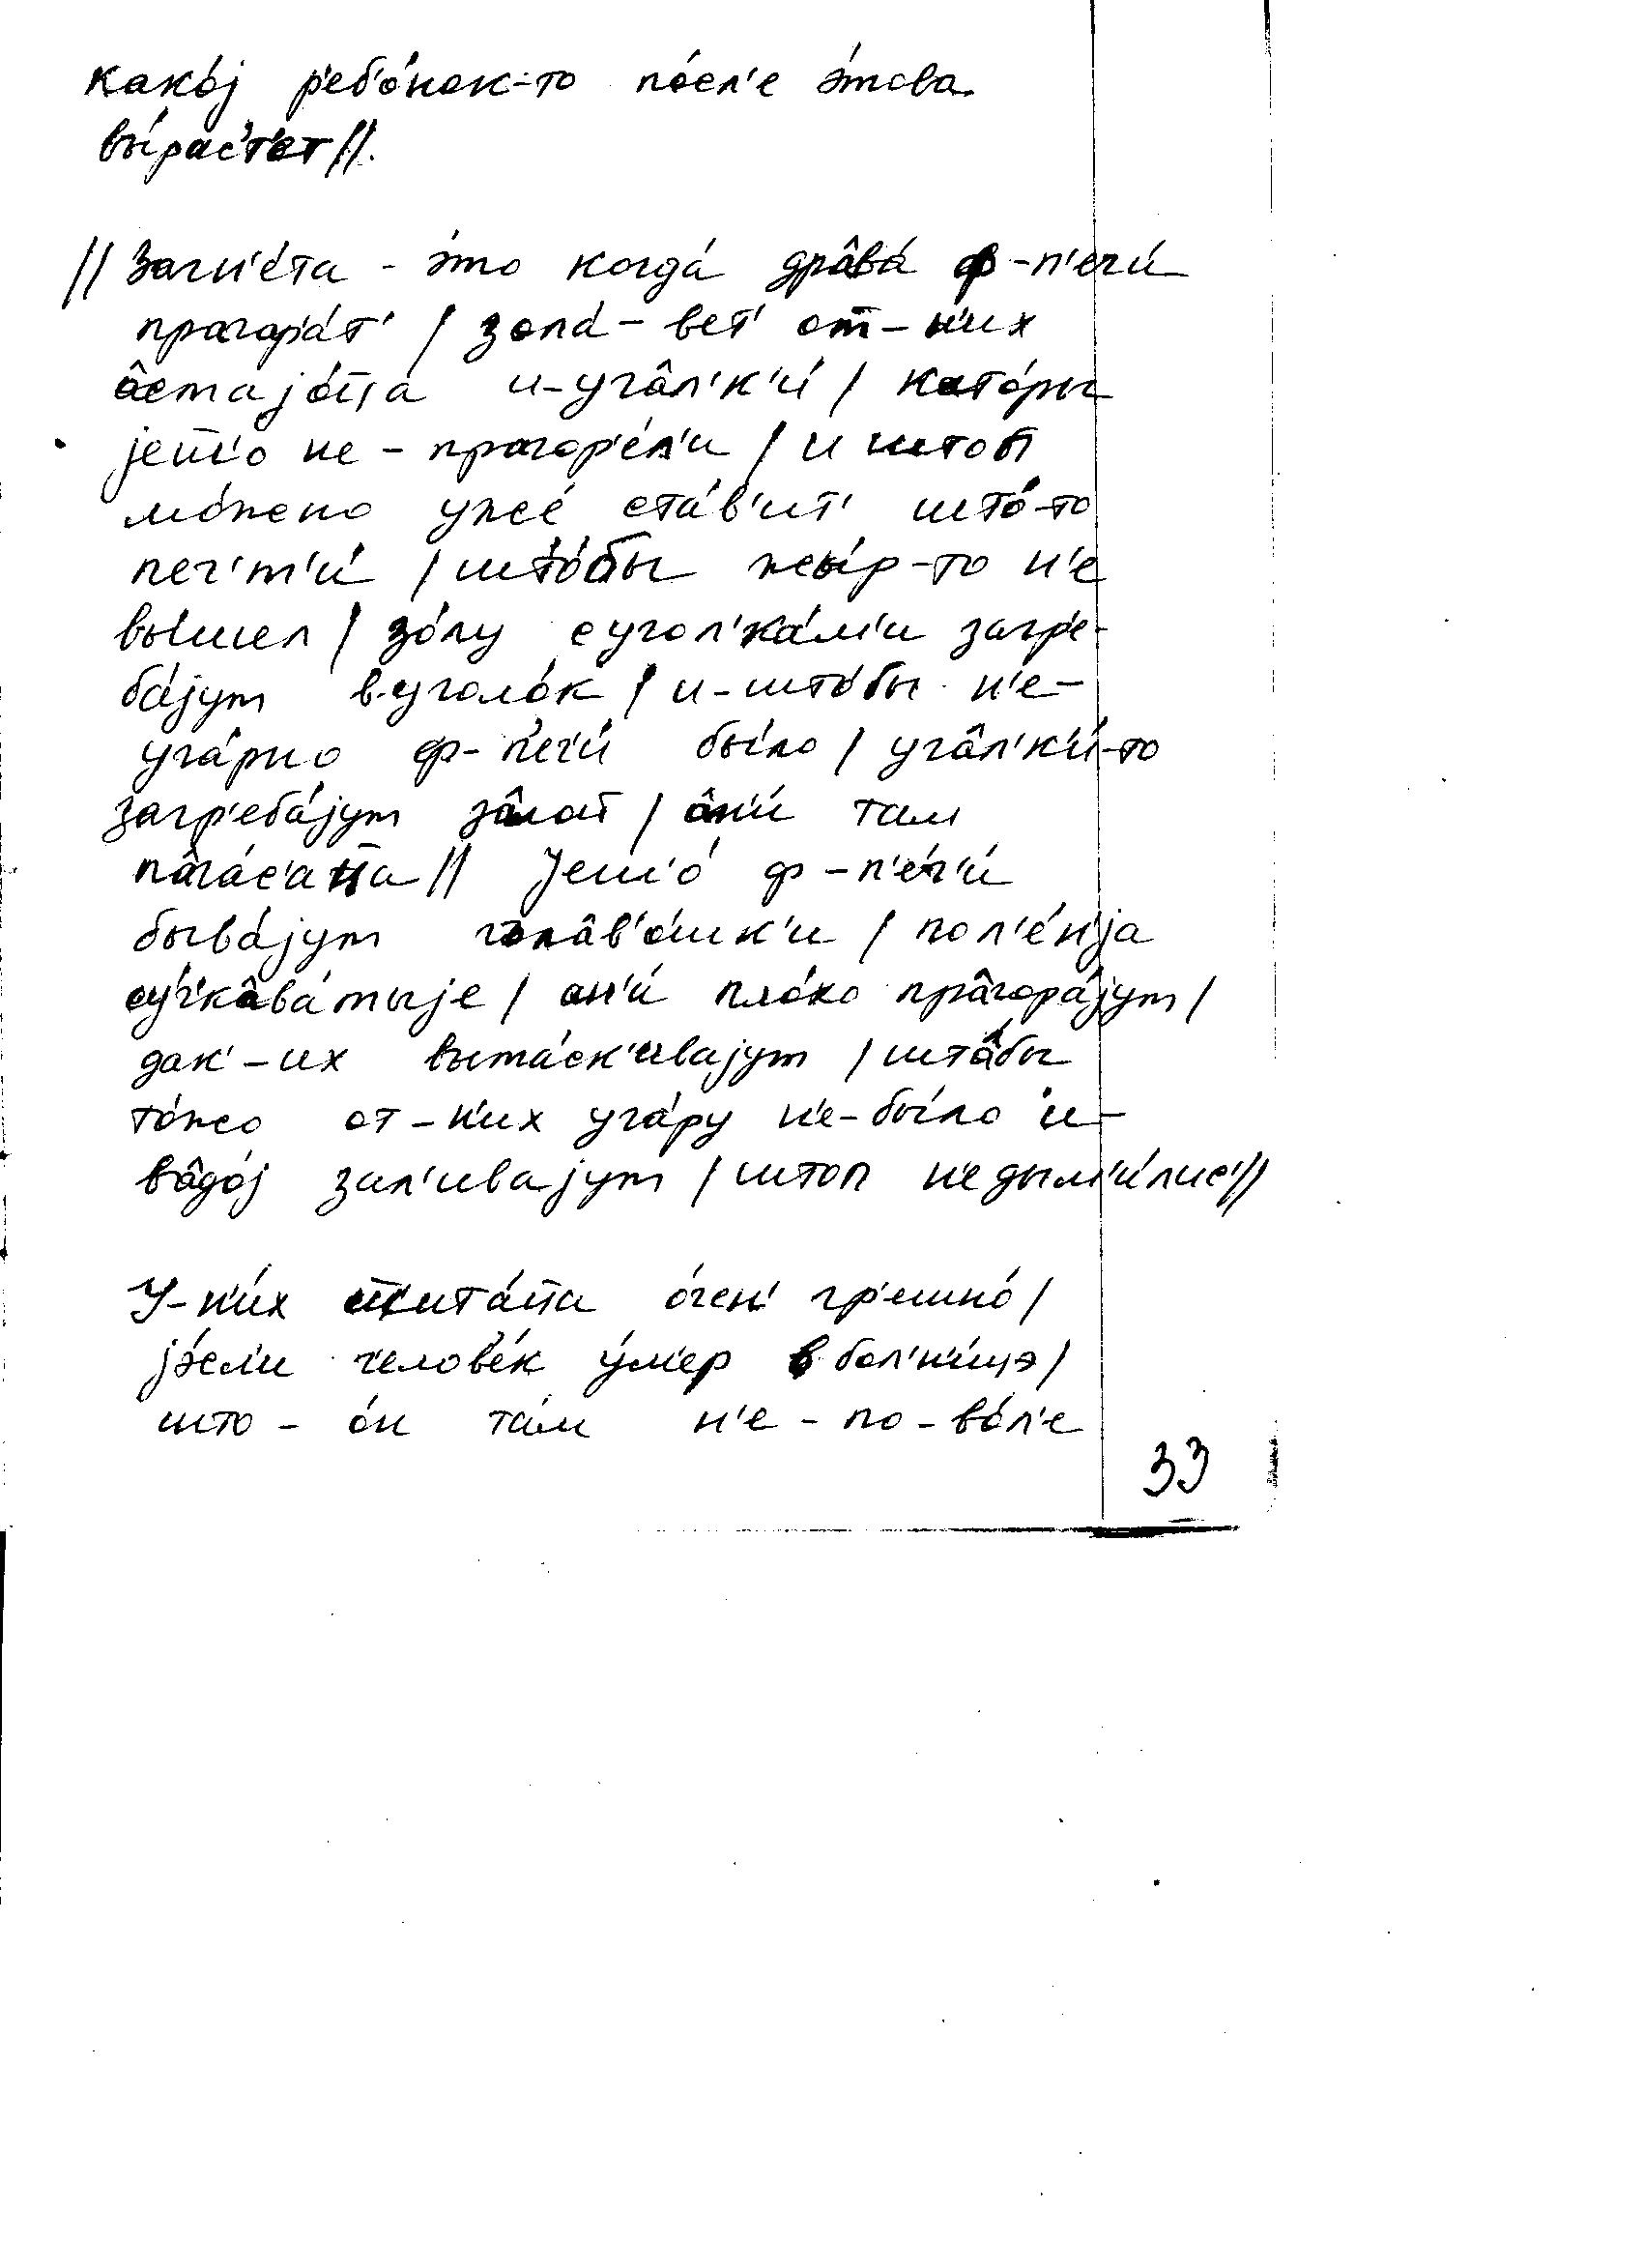 како́j р'еб'о́нок-то по́сл'е э́това
вы́раст'от //.
// Загн'е́та - э́то когда́ дрâва́ ф-п'еч'и́
прагар'а́т' / зола́ - вет' от-н'их
âстаjо́ц̄а и-угâл'к'и́ / кото́ры
jеш̄'о не - прогор'е́л'и / и штоп
мо́жно уже́ ста́в'ит' што́-то
печ'т'и́ / што́бы жы́р-то н'е
вы́шел / зо́лу с угол'ка́м'и загр'е-
ба́jут в-уголо́к / и-што́бы н'е-
уга́рно ф-п'еч'и́ бы́ло / угâл'к'и́-то
загр'еба́jут зâлой / âн'и́ там
пâга́с'ац̄а // Jеш'о́ ф-п'еч'и́
быва́jут голâв'о́шк'и / пол'е́н'jа
суч'кâва́тыjе / он'и́ пло́хо прâгора́jут /
дак'-их выта́ск'иваjут / штấбы
то́жо от-н'их уга́ру н'е-бы́ло и-
вâдо́j зал'иваjут / штоп н'е дым'и́лис' //
У-н'и́х ш̄'ита́ц̄а о́чен' гр'ешно́ /
jэ́сл'и ч'елов'е́к у́м'ер в бол'н'и́цэ /
што - о́н та́м н'е - по - во́л'е
33